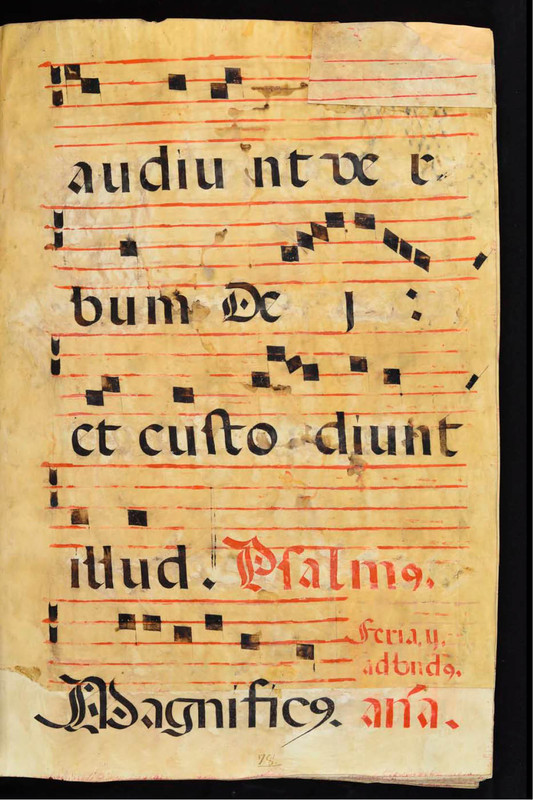 audiunt ver
bum De j :
et custodiunt
illud. Psalmꝯ.
Feria. ij.
ad bndꝯ.
Magnificꝯ. aña.